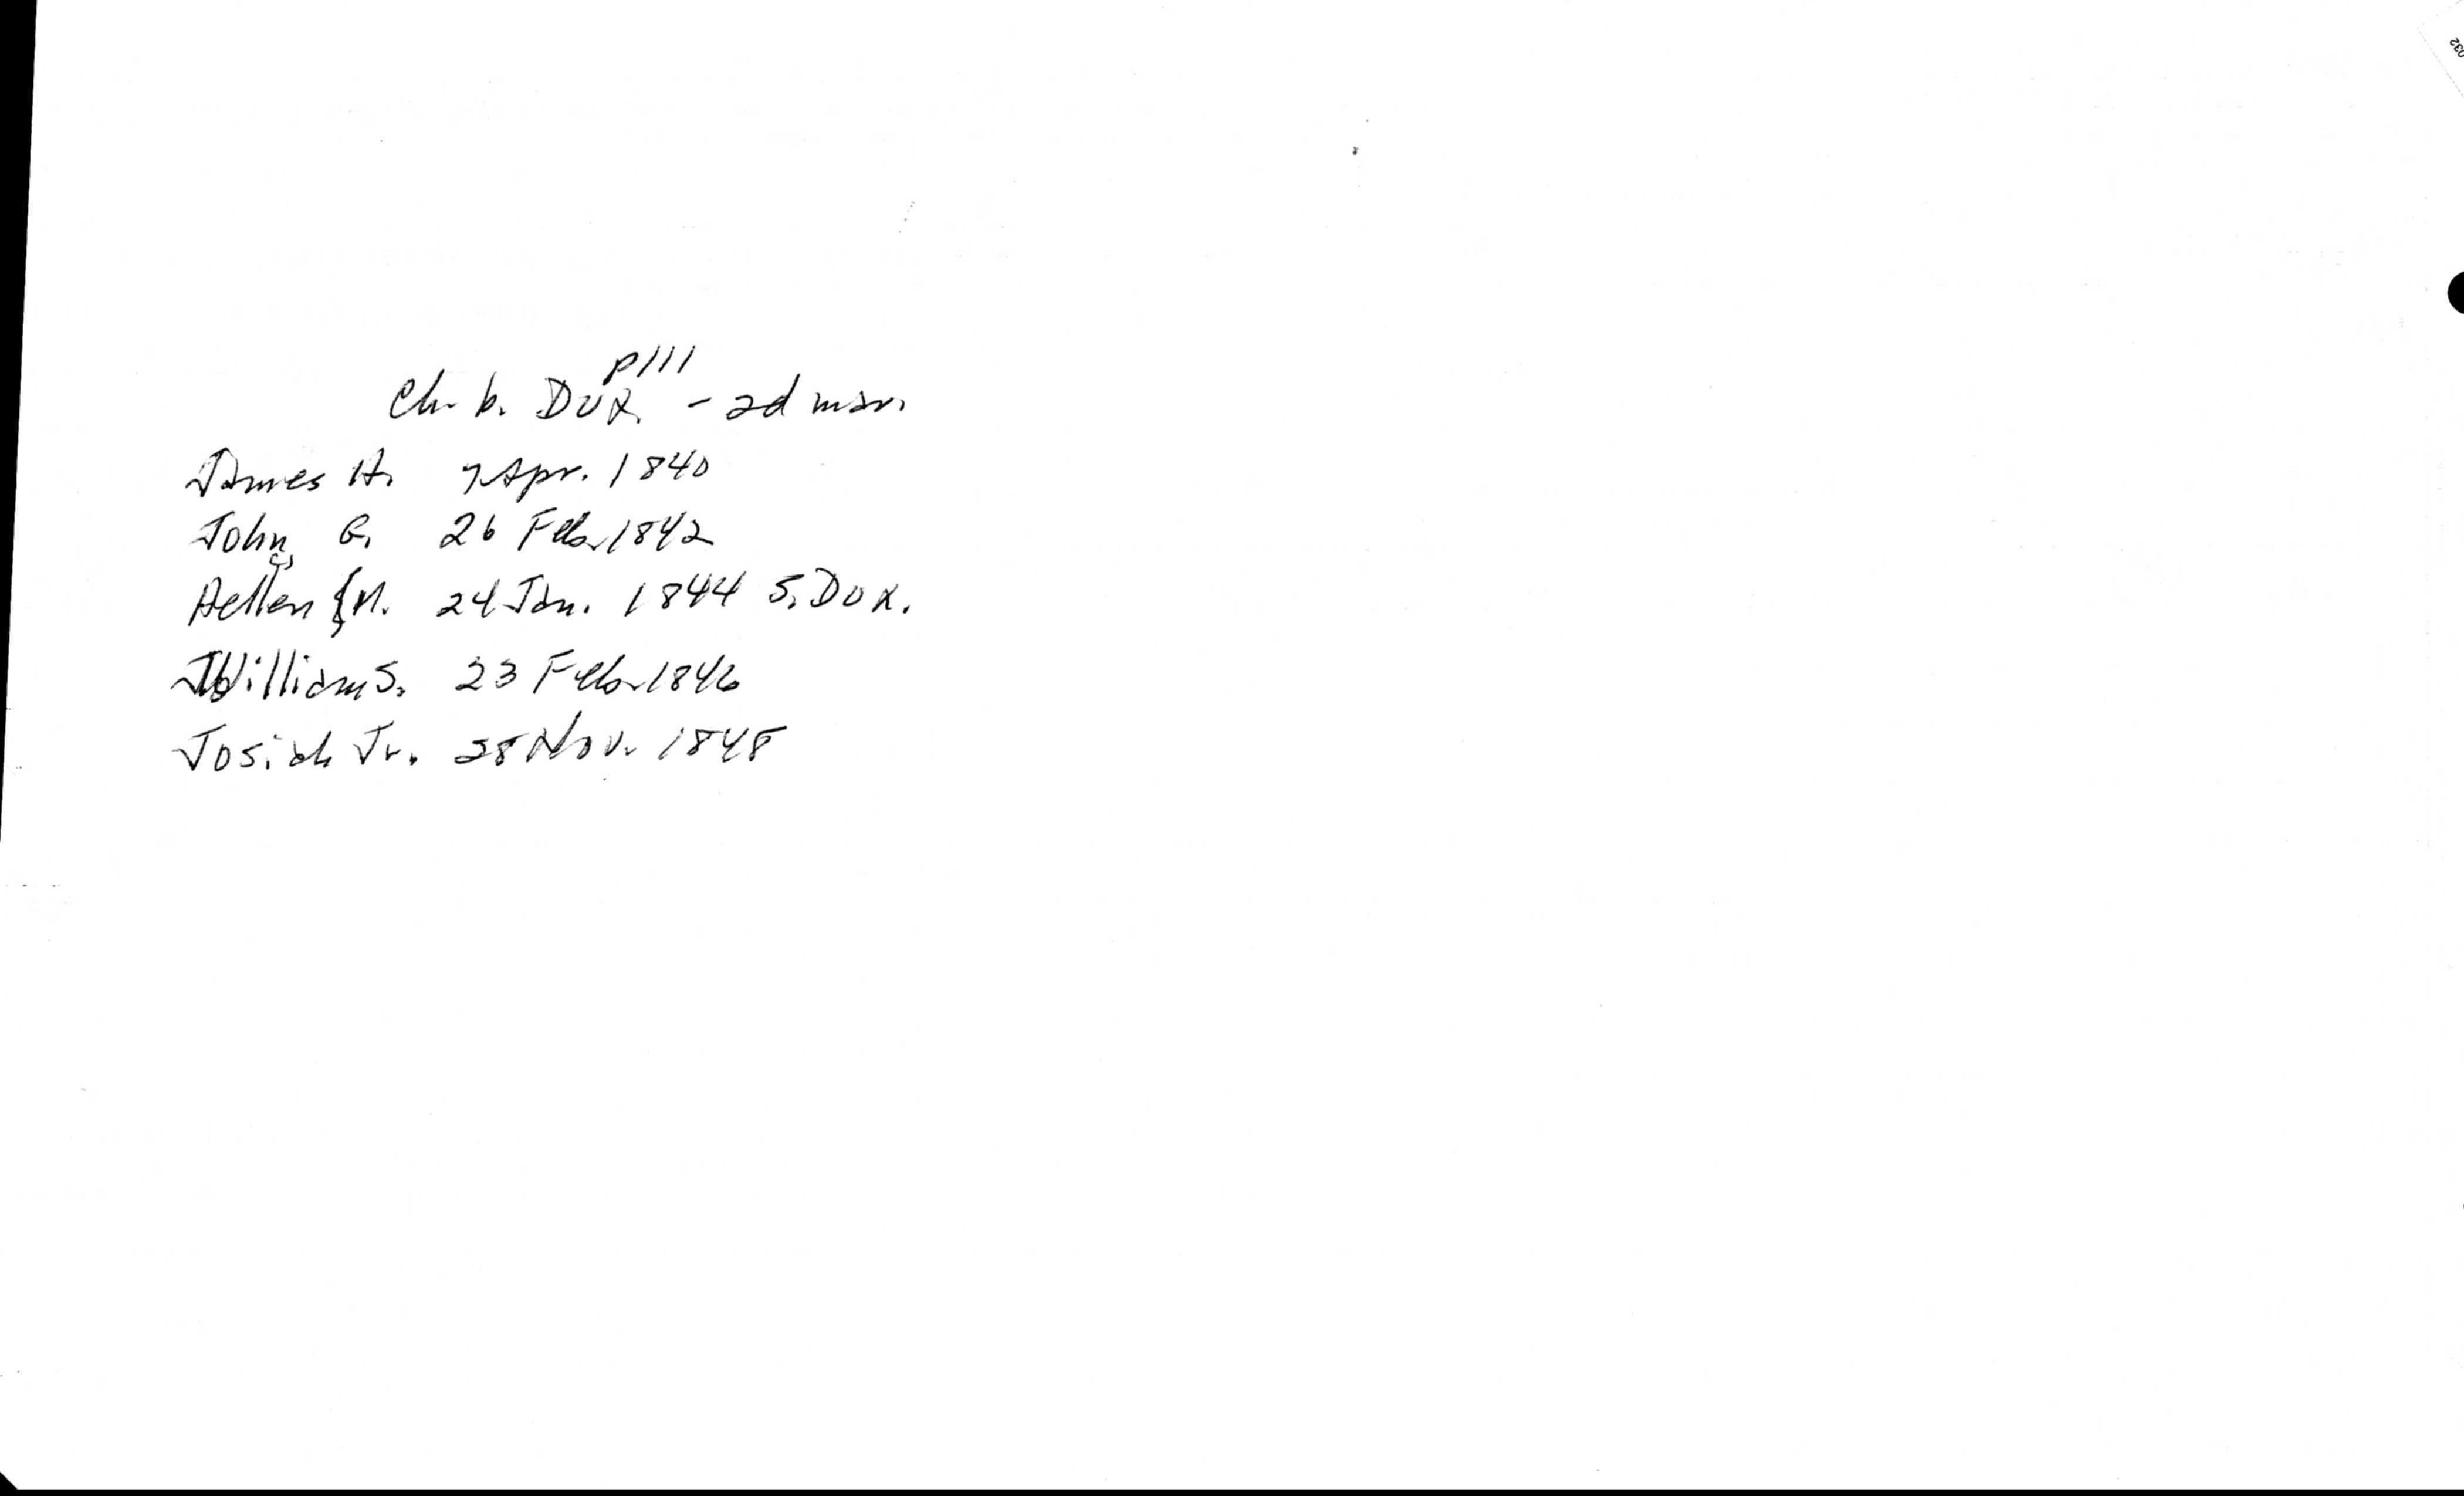 p111
Ch. b. DUX. - 2d mar.
James H. 7 Apr. 1840
John G. 26 Feb. 1842
Hellen {M. 24 Jan. 1844 S. Dux.
William S. 23 Feb. 1846
Josiah Jr. 28 Nov. 1848
032